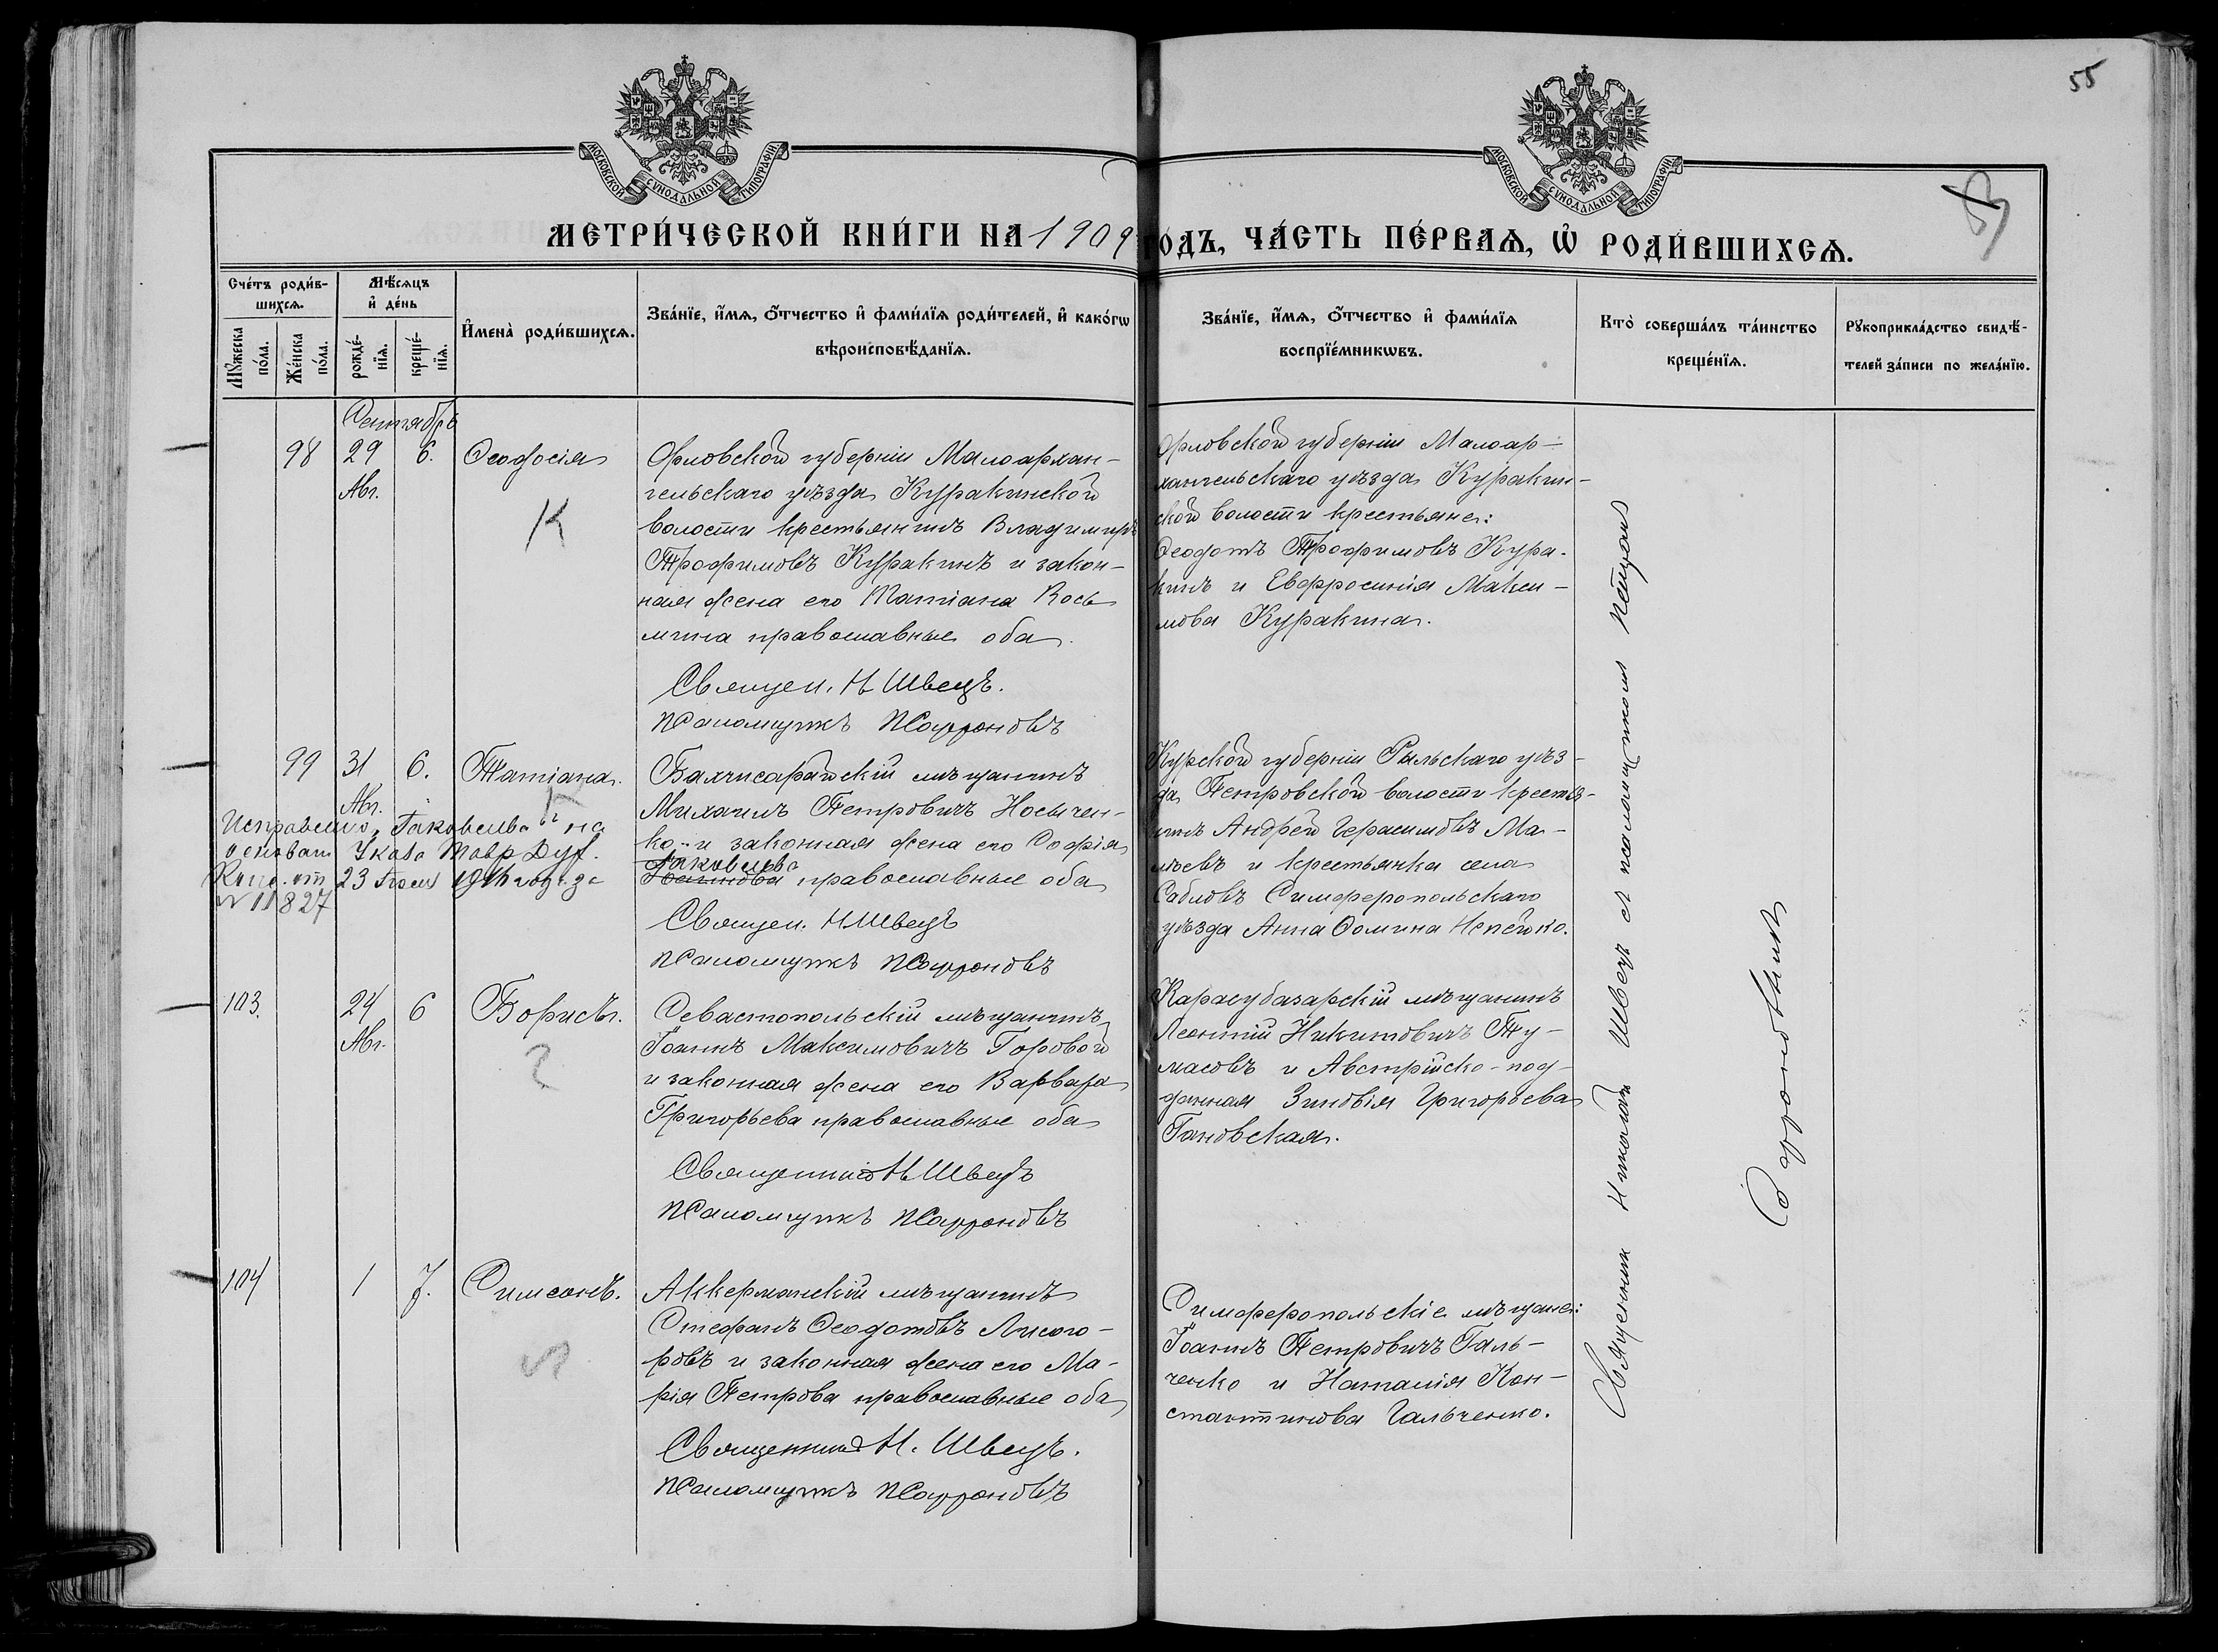 55
МОСКОВСКОЙ СѴНОДАЛЬНОЙ ТИПОГРАФІИ
МОСКОВСКОЙ СѴНОДАЛЬНОЙ ТИПОГРАФІИ
МЕТРИ́ЧЕСКОЙ КНИ́ГИ НА 1909 ГОДЪ, ЧА́СТЬ ПЕ́РВАѦ, Ѡ҆ РОДИ́ВШИХСѦ.
Сче́тъ роди́в-
шихсѧ.
Мꙋ́жеска по́ла.
Же́нска по́ла.
Мѣ́сѧцъ
и҆ де́нь
рожде́-
нїѧ.
креще́-
нїѧ.
И҆мена̀ роди́вшихсѧ.
Зва́нїе, и҆́мѧ, ѻ҆́тчество и҆ фами́лїѧ роди́телей, и҆ како́гѡ
вѣроисповѣ́данїѧ.
Зва́нїе, и҆́мѧ, ѻ҆́тчество и҆ фами́лїѧ
воспрїе́мникѡвъ.
Кто̀ соверша́лъ та́инство
креще́нїѧ.
Рꙋкоприкла́дство свидѣ́-
телей за́писи по жела́нїю.
Сентябрь
98 29 6. Ѳеодосія
Авг.
К
Орловской губерніи Малоархан-
гельскаго уѣзда Куракинской
волости крестьянинъ Владимиръ
Трофимовъ Куракинъ и закон-
ная жена его Татіана Кось
мина православные оба.
Священ. Н Швецъ.
Псаломщикъ П Софроновъ
Орловской губерніи Малоар-
хангельскаго уѣзда Куракин-
ской волости крестьяне:
Ѳеодотъ Трофимовъ Кура-
кинъ и Евфросинія Макси-
мова Куракина.
99 31 6. Татіана.
Авг.
К
Исправлено „Іаковлева" на
основан Указа Тавр Дух.
Конс. от 23 1916 года за
№ 11827
Бахчисарайскій мѣщанинъ
Михаилъ Петровичъ Носычен-
ко и законная жена его Софія
Іаковлева
православные оба
Священ. Н Швецъ
Псаломщикъ П Софроновъ
Курской губерніи Рыльскаго уѣз-
да, Петровской волости крестья-
нинъ Андрей Герасимовъ Ма-
лѣевъ и крестьянка села
Сабловъ Симферопольскаго
уѣзда Анна Ѳомина Непейко.
103. 24 6 Борисъ.
Авг.
Севастопольскій мѣщанинъ
Іоаннъ Максимовичъ Горовой
и законная жена его Варвара
Григорьева православные оба
Священникъ Н Швецъ
Псаломщикъ П Софроновъ
Карасубазарскій мѣщанинъ
Леонтій Никитовичъ Ту-
масовъ и Австрійско-под-
данная Зиновія Григорьева
Гановская.
104 1 7. Симеонъ.
Аккерманскій мѣщанинъ
Стефанъ Ѳеодотовъ Лисого-
ровъ и законная жена его Ма-
рія Петрова православные оба
Священникъ Н. Швецъ.
Псаломщикъ П Софроновъ
Симферопольскіе мѣщане:
Іоаннъ Петровичъ Галь-
ченко и Наталія Кон-
стантинова Гальченко.
Священник Николай Швецъ съ псаломщикомъ
Софроновымъ